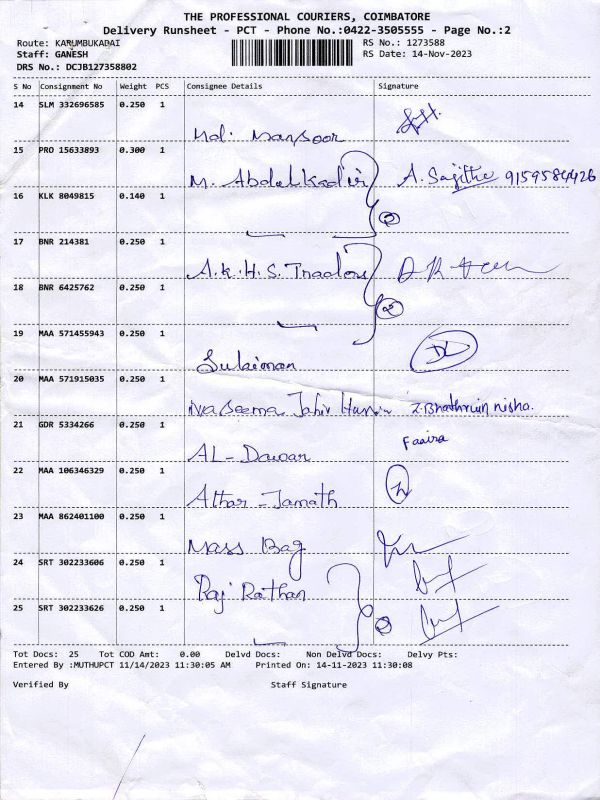 THE PROFESSIONAL COURIERS, COIMBATORE
Delivery Runsheet - PCT - Phone No.:0422-3505555 - Page No.:2
Route: KARUMBUKADAI RS No.: 1273588
Staff: GANESH RS Date: 14-Nov-2023
DRS No.: DCJB127358802
S No Consignment No Weight PCS Consignee Details Signature
14 SLM 332696585 0.250 1
Md. Mansoor
15 PRO 15633893 0.300 1
M. Abdul Kadir A. Sajitha 9159584426
16 KLK 8049815 0.140 1
2
17 BNR 214381 0.250 1
A.K.H.S. Traders
18 BNR 6425762 0.250 1
2
19 MAA 571455943 0.250 1
Sulaiman
20 MAA 571915035 0.250 1
Jahir nisha.
21 GDR 5334266 0.250 1
AL-Dawan Faaira
22 MAA 106346329 0.250 1
Athar-Jamath
23 MAA 862401100 0.250 1
Mass Bag
24 SRT 302233606 0.250 1
Raj Rathan
25 SRT 302233626 0.250 1
2
Tot Docs: 25 Tot COD Amt: 0.00 Delvd Docs: Non Delvd Docs: Delvy Pts:
Entered By :MUTHUPCT 11/14/2023 11:30:05 AM Printed On: 14-11-2023 11:30:08
Verified By Staff Signature